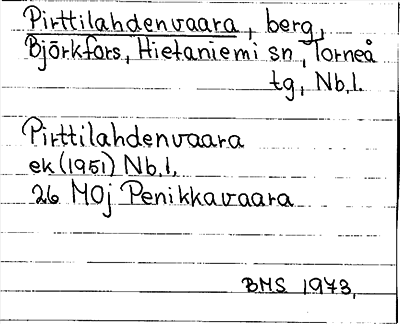 Pirttilahdenvaara, berg,
Björkfors, Hietaniemi sn, Torneå
tg, Nb.l.
Pirttilahdenvaara
ek (1951) Nb.l.
26 M0j Penikkavaara
BMS 1973.